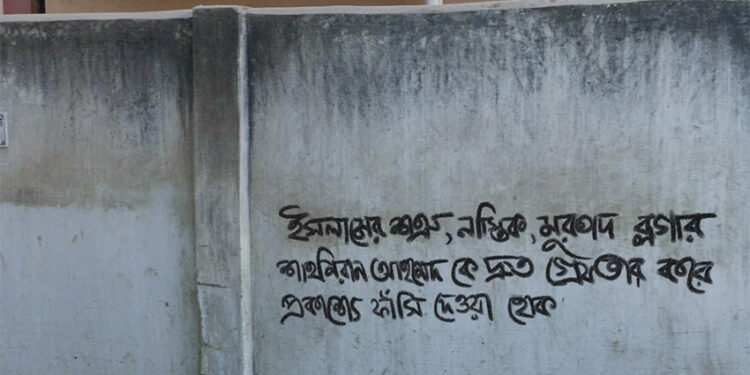 ইসলামের শত্রু, নাস্তিক, মুরতাদ ব্লগার
আহমেদ কে দ্রুত গ্রেফতার করে
প্রকাশ্যে ফাঁসি দেওয়া হোক